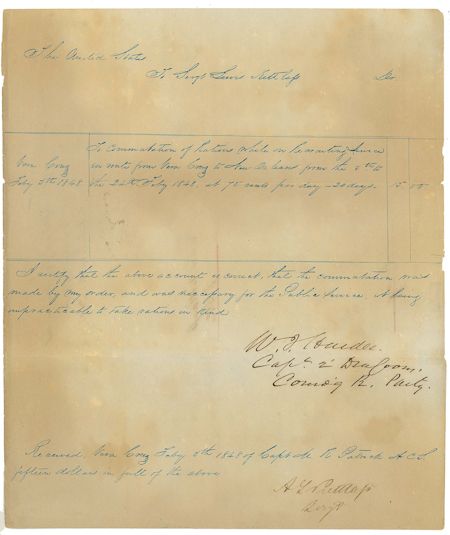 The United States
To Sergt Lewis Dr
To Commutation of Rations while on Recruiting Service
Vera Cruz en route from Vera Cruz to New Orleans from the 5th to
Feby 5th 1848 the 24th Feby 1848, at 75 cents per day - 20 days. 15 00
I certify that the above account is correct, that the commutation was
made by my order, and was necessary for the Public Service it being
impracticable to take rations in kind
W. J. Hardee
Capt 2d Dragoons
Comdg R. Party.
Received, Vera Cruz Feby 5th 1848 of Capt M R Patrick A C S
fifteen dollars in full of the above
A L
Sergt